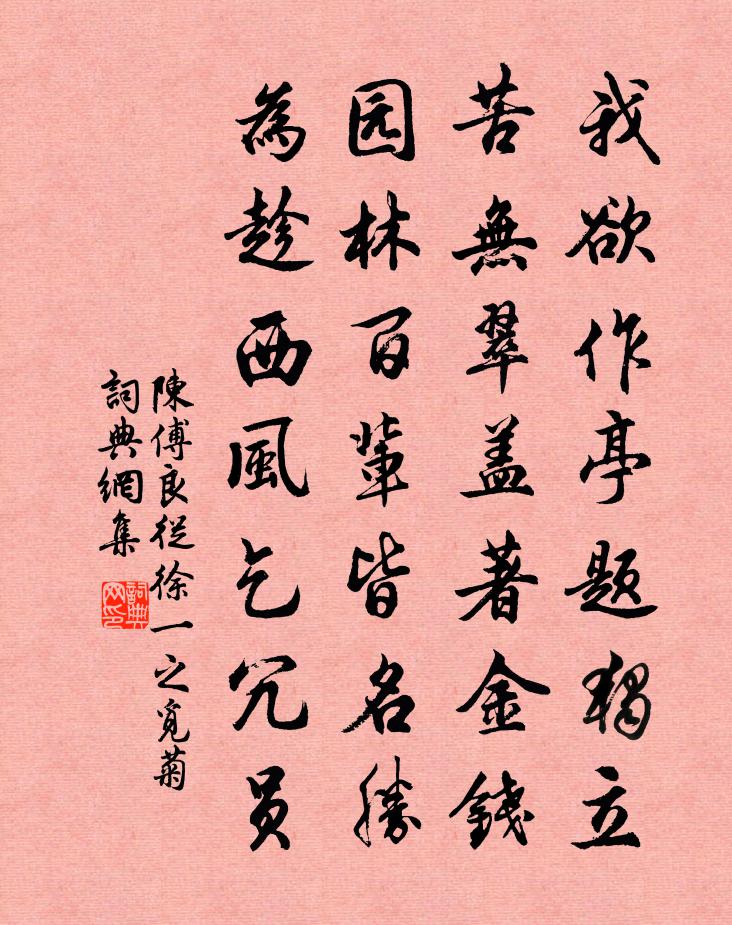 我欲作亭题獨立
苦無翠盖著金錢
园林百輩皆名勝
為趁西風乞冗员
陳傅良從徐一之覓菊
詞典網集
詞典网印